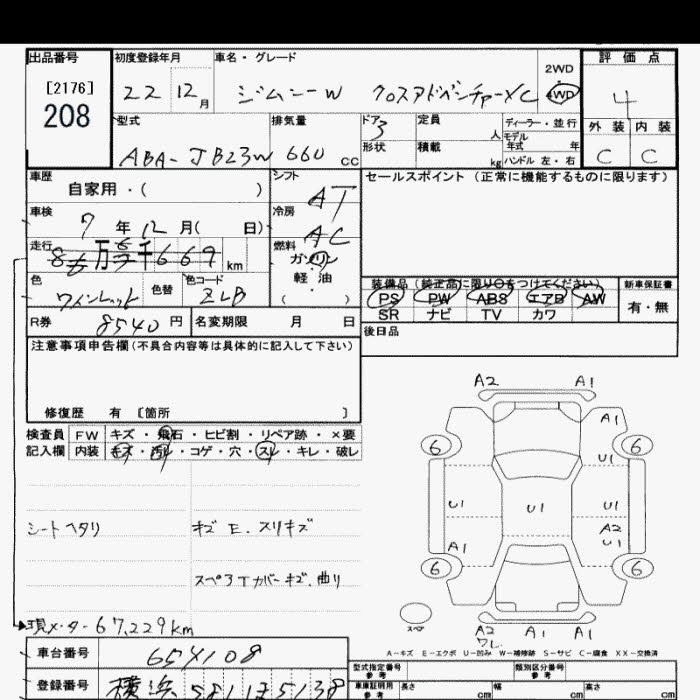 出品番号 初度登録年月 車名・グレード 評価点
[2176] 2WD
208 22 12月 ジムニーW クロスアドベンチャーXC 4WD 4
型式 排気量 ドア 定員 ディーラー・並行 外装 内装
3 人 モデル
年式 年
ABA-JB23W 660 cc 形状 積載 kg ハンドル 左・右 C C
車歴 シフト セールスポイント (正常に機能するものに限ります)
自家用・( ) AT
車検 冷房
7年12月( 日) AC
走行 燃料
8 万 千669 km ガソリン
軽油
色 色替 色コード 装備品(純正品に限り○をつけてください) 新車保証書
ワインレッド ZLB ( ) PS PW ABS エアB AW 有・無
R券 8540円 名変期限 月 日 SR ナビ TV カワ
注意事項申告欄(不具合内容等は具体的に記入して下さい) 後日品
修復歴 有 [箇所 ]
検査員 FW キズ・飛石・ヒビ割・リペア跡・×要
記入欄 内装 キズ・汚れ・コゲ・穴・スレ・キレ・破レ
A2 A1
A1
6 6
U1
U1 U1 U1
シートヘタリ キズE.スリキズ A2
U1
A1
6 6
スペアTカバーキズ、曲り
スペア
現メーター67,229km A2 A1 A1
ワレ
A-キズ E-エクボ U-凹み W-補修跡 S-サビ C-腐食 XX-交換済
車台番号 654108 型式指定番号 類別区分番号
参考 参考
登録番号 横浜581 5138 車庫証明用 長さ cm 幅 cm 高さ cm
参考